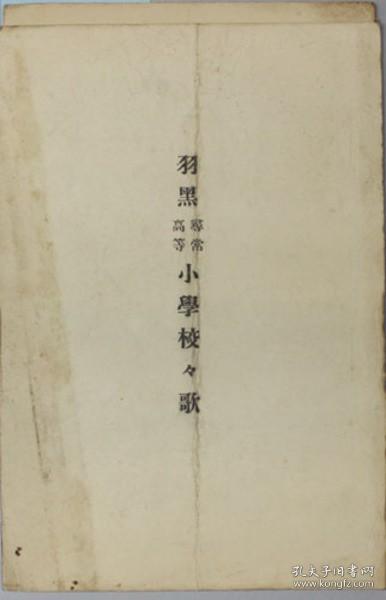 羽黑尋常高等小學校々歌
孔夫子旧书网